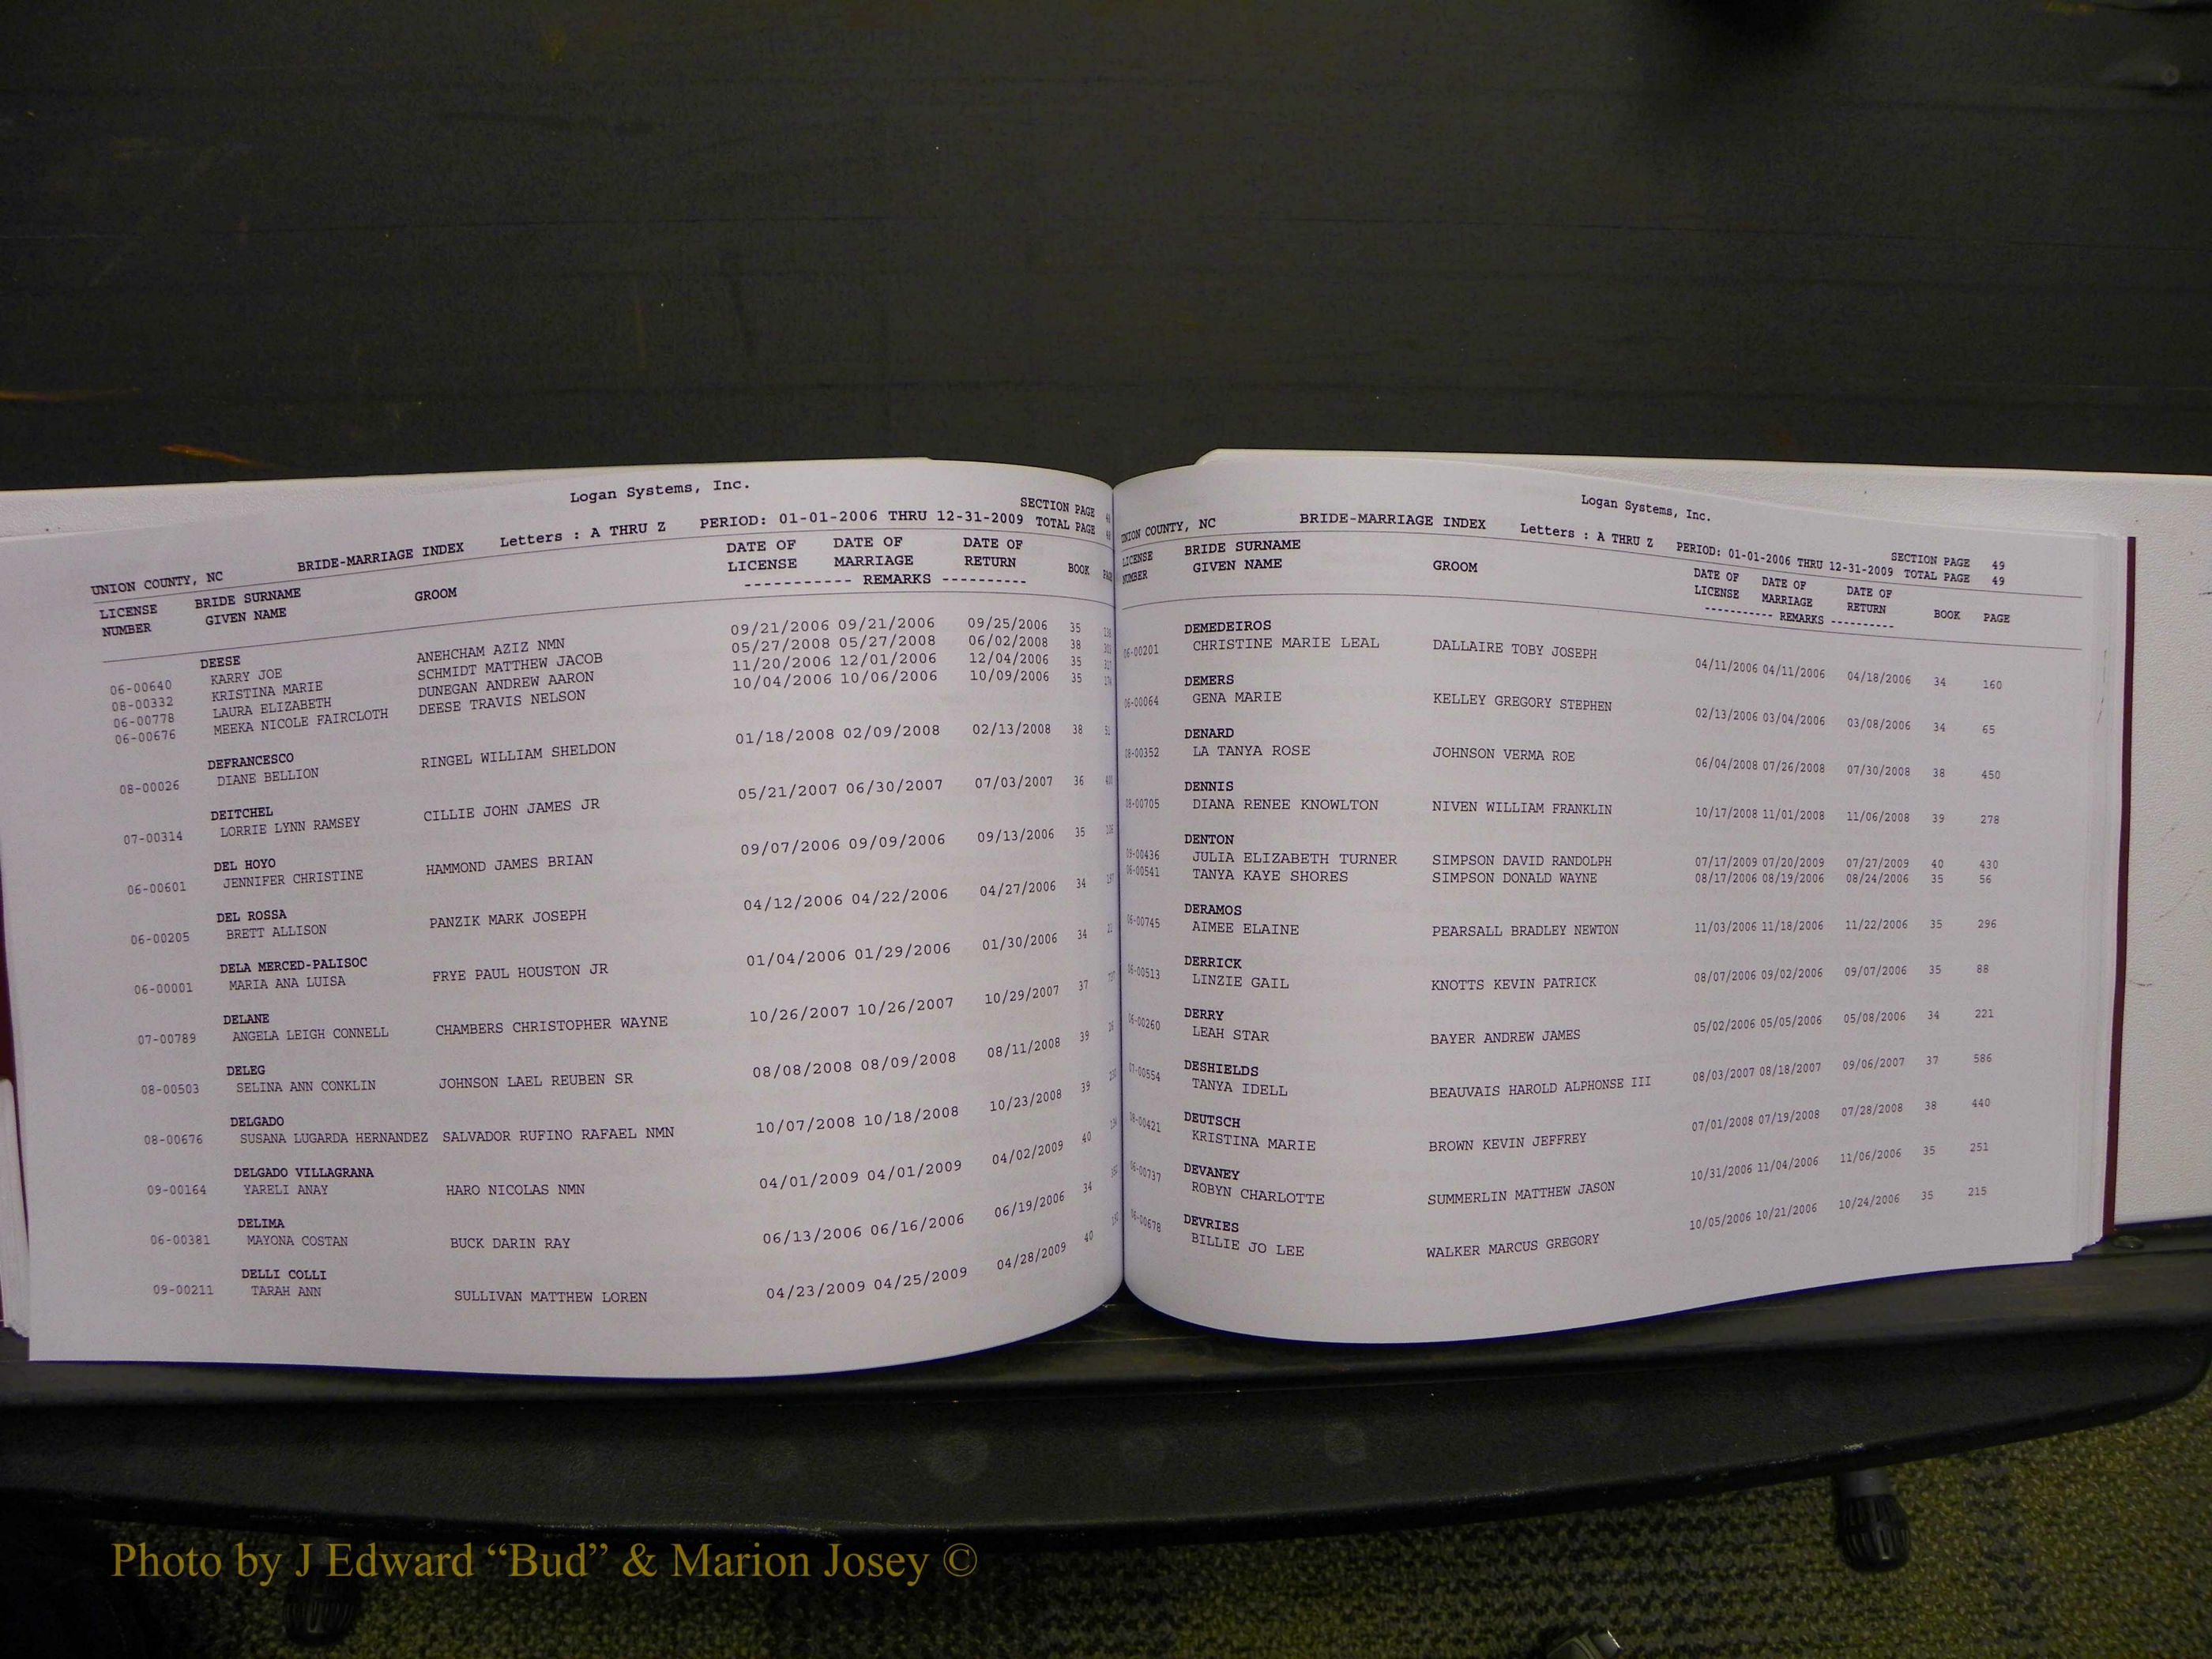 Logan Systems, Inc.
UNION COUNTY, NC BRIDE-MARRIAGE INDEX Letters : A THRU Z PERIOD: 01-01-2006 THRU 12-31-2009 SECTION PAGE
TOTAL PAGE
LICENSE NUMBER BRIDE SURNAME GIVEN NAME GROOM DATE OF LICENSE DATE OF MARRIAGE DATE OF RETURN BOOK
----------- REMARKS ----------
DEESE
06-00640 KARRY JOE ANEHCHAM AZIZ NMN 09/21/2006 09/21/2006 09/25/2006 35
08-00332 KRISTINA MARIE SCHMIDT MATTHEW JACOB 05/27/2008 05/27/2008 06/02/2008 38
06-00778 LAURA ELIZABETH DUNEGAN ANDREW AARON 11/20/2006 12/01/2006 12/04/2006 35
06-00676 MEEKA NICOLE FAIRCLOTH DEESE TRAVIS NELSON 10/04/2006 10/06/2006 10/09/2006 35
DEFRANCESCO
08-00026 DIANE BELLION RINGEL WILLIAM SHELDON 01/18/2008 02/09/2008 02/13/2008 38
DEITCHEL
07-00314 LORRIE LYNN RAMSEY CILLIE JOHN JAMES JR 05/21/2007 06/30/2007 07/03/2007 36
DEL HOYO
06-00601 JENNIFER CHRISTINE HAMMOND JAMES BRIAN 09/07/2006 09/09/2006 09/13/2006 35
DEL ROSSA
06-00205 BRETT ALLISON PANZIK MARK JOSEPH 04/12/2006 04/22/2006 04/27/2006 34
DELA MERCED-PALISOC
06-00001 MARIA ANA LUISA FRYE PAUL HOUSTON JR 01/04/2006 01/29/2006 01/30/2006 34
DELANE
07-00789 ANGELA LEIGH CONNELL CHAMBERS CHRISTOPHER WAYNE 10/26/2007 10/26/2007 10/29/2007 37
DELEG
08-00503 SELINA ANN CONKLIN JOHNSON LAEL REUBEN SR 08/08/2008 08/09/2008 08/11/2008 39
DELGADO
08-00676 SUSANA LUGARDA HERNANDEZ SALVADOR RUFINO RAFAEL NMN 10/07/2008 10/18/2008 10/23/2008 39
DELGADO VILLAGRANA
09-00164 YARELI ANAY HARO NICOLAS NMN 04/01/2009 04/01/2009 04/02/2009 40
DELIMA
06-00381 MAYONA COSTAN BUCK DARIN RAY 06/13/2006 06/16/2006 06/19/2006 34
DELLI COLLI
09-00211 TARAH ANN SULLIVAN MATTHEW LOREN 04/23/2009 04/25/2009 04/28/2009 40
Logan Systems, Inc.
UNION COUNTY, NC BRIDE-MARRIAGE INDEX Letters : A THRU Z PERIOD: 01-01-2006 THRU 12-31-2009 SECTION PAGE 49
TOTAL PAGE 49
LICENSE NUMBER BRIDE SURNAME GIVEN NAME GROOM DATE OF LICENSE DATE OF MARRIAGE DATE OF RETURN BOOK PAGE
----------- REMARKS ----------
DEMEDEIROS
06-00201 CHRISTINE MARIE LEAL DALLAIRE TOBY JOSEPH 04/11/2006 04/11/2006 04/18/2006 34 160
DEMERS
06-00064 GENA MARIE KELLEY GREGORY STEPHEN 02/13/2006 03/04/2006 03/08/2006 34 65
DENARD
08-00352 LA TANYA ROSE JOHNSON VERMA ROE 06/04/2008 07/26/2008 07/30/2008 38 450
DENNIS
08-00705 DIANA RENEE KNOWLTON NIVEN WILLIAM FRANKLIN 10/17/2008 11/01/2008 11/06/2008 39 278
DENTON
09-00436 JULIA ELIZABETH TURNER SIMPSON DAVID RANDOLPH 07/17/2009 07/20/2009 07/27/2009 40 430
06-00541 TANYA KAYE SHORES SIMPSON DONALD WAYNE 08/17/2006 08/19/2006 08/24/2006 35 56
DERAMOS
06-00745 AIMEE ELAINE PEARSALL BRADLEY NEWTON 11/03/2006 11/18/2006 11/22/2006 35 296
DERRICK
06-00513 LINZIE GAIL KNOTTS KEVIN PATRICK 08/07/2006 09/02/2006 09/07/2006 35 88
DERRY
06-00260 LEAH STAR BAYER ANDREW JAMES 05/02/2006 05/05/2006 05/08/2006 34 221
DESHIELDS
07-00554 TANYA IDELL BEAUVAIS HAROLD ALPHONSE III 08/03/2007 08/18/2007 09/06/2007 37 586
DEUTSCH
08-00421 KRISTINA MARIE BROWN KEVIN JEFFREY 07/01/2008 07/19/2008 07/28/2008 38 440
DEVANEY
06-00737 ROBYN CHARLOTTE SUMMERLIN MATTHEW JASON 10/31/2006 11/04/2006 11/06/2006 35 251
DEVRIES
06-00678 BILLIE JO LEE WALKER MARCUS GREGORY 10/05/2006 10/21/2006 10/24/2006 35 215
Photo by J Edward “Bud” & Marion Josey ©